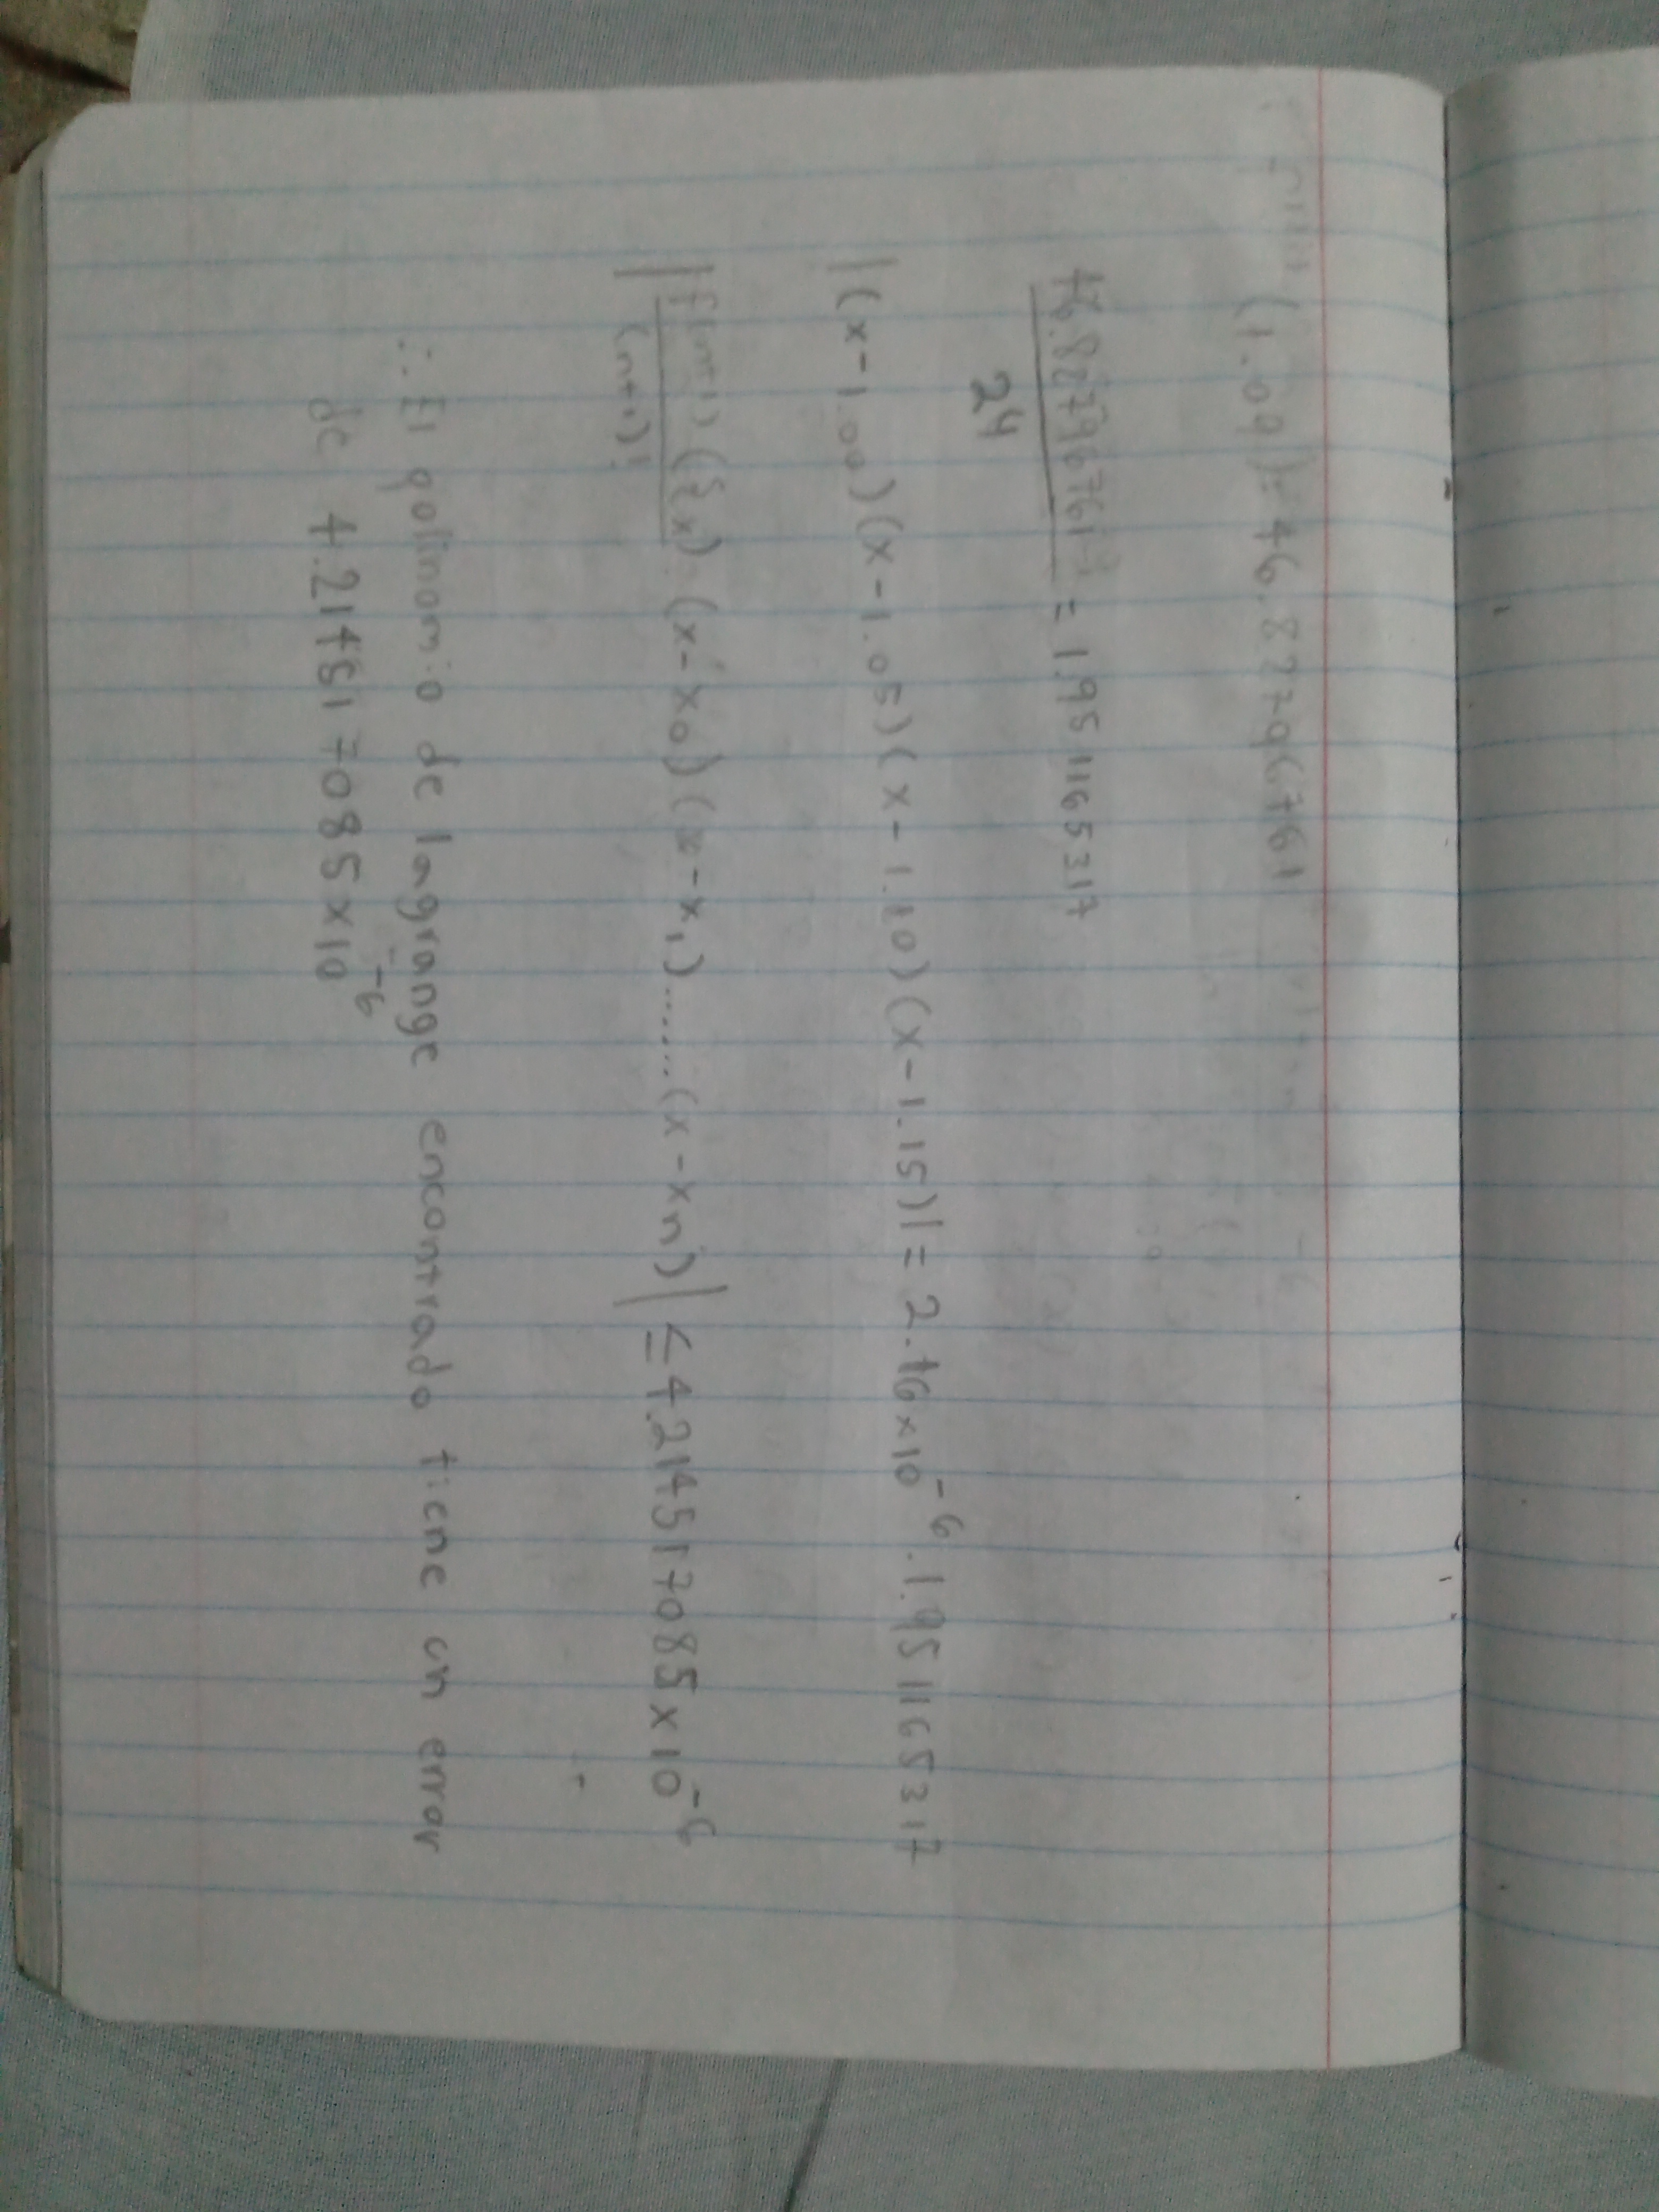 f (1.09) = 46.82796761
46.82796761
24
= 1.951165317
|(x-1.00)(x-1.05)(x-1.10)(x-1.15)| = 2.16x10^-6 . 1.951165317
|f(n+1) (ξx) (x-x0)(x-x1)......(x-xn)| ≤ 4.214517085x10^-6
(n+1)!
∴ El polinomio de lagrange encontrado tiene un error
de 4.214517085x10^-6